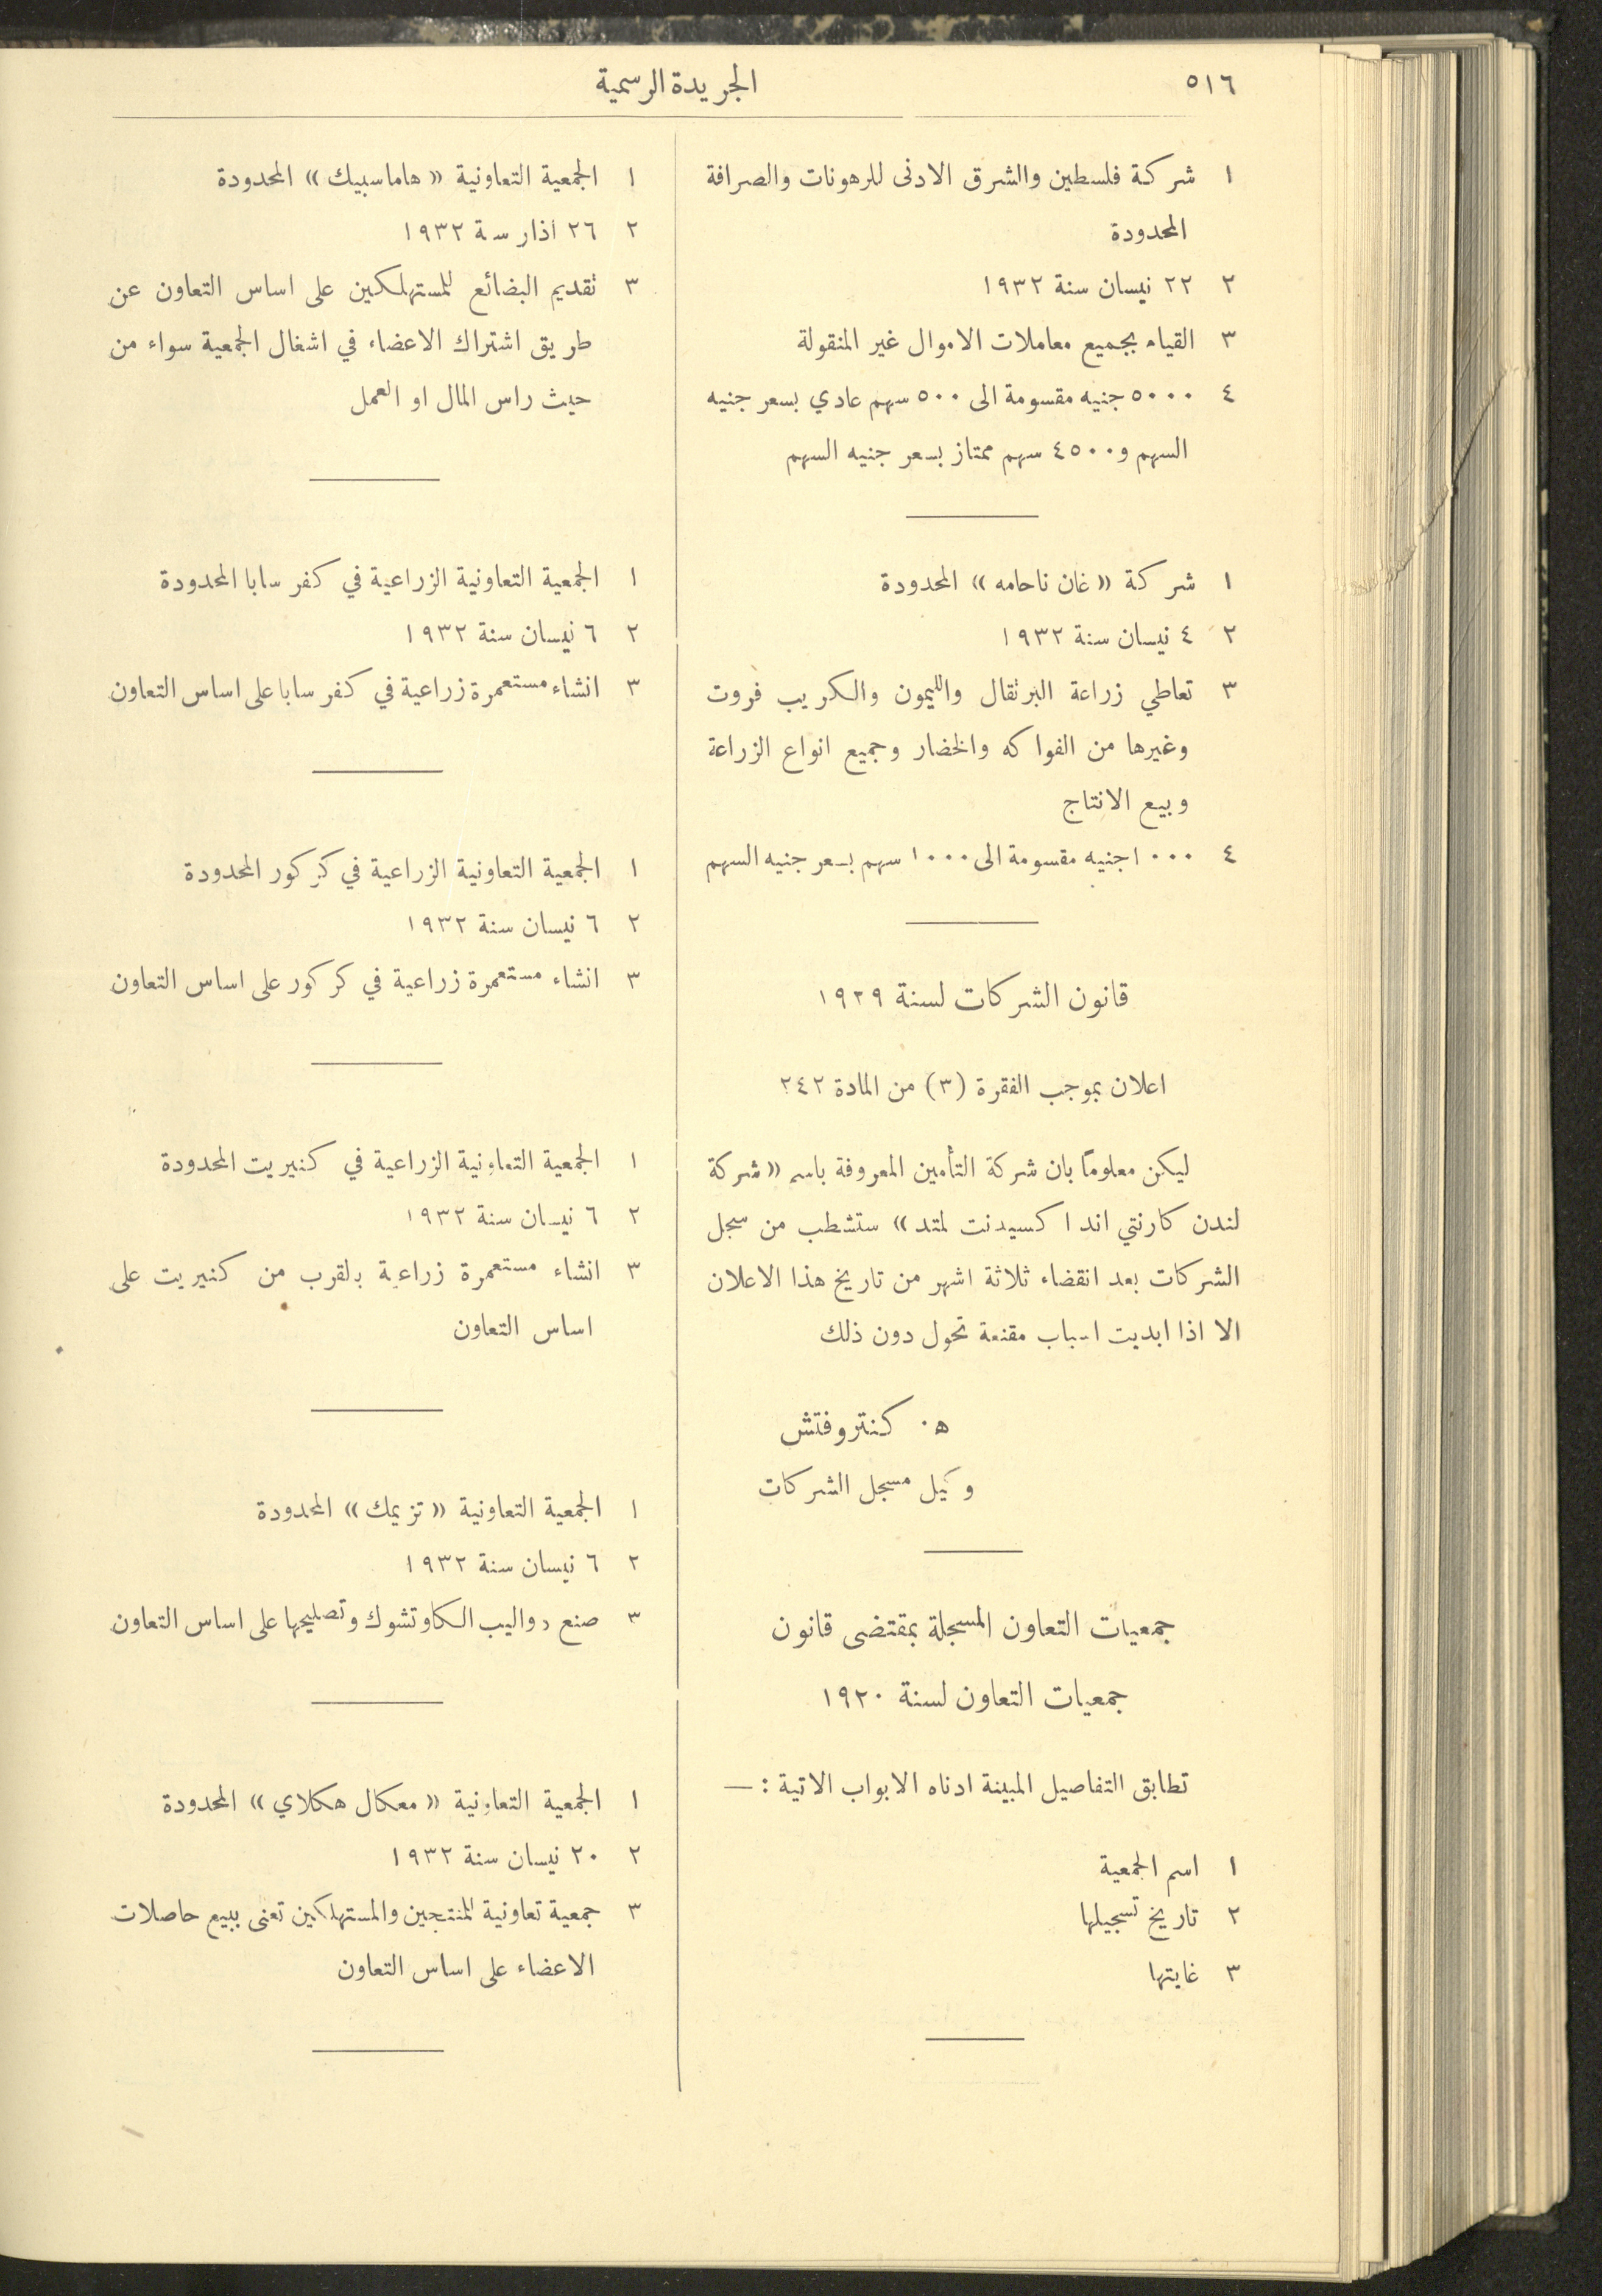 ٥١٦
الجريدة الرسمية
١ شركة فلسطين والشرق الادنى للرهونات والصرافة
المحدودة
٢ ٢٢ نيسان سنة ١٩٣٢
٣ القيام بجميع معاملات الاموال غير المنقولة
٤ ٥٠٠٠ جنيه مقسومة الى ٥٠٠ سهم عادي بسعر جنيه
السهم و٤٥٠٠ سهم ممتاز بسعر جنيه السهم
١ شركة «غان ناحامه» المحدودة
٢ ٤ نيسان سنة ١٩٣٢
٣ تعاطي زراعة البرتقال والليمون والكريب فروت
وغيرها من الفواكه والخضار وجميع انواع الزراعة
وبيع الانتاج
٤ ١٠٠٠ جنيه مقسومة الى ١٠٠٠ سهم بسعر جنيه السهم
قانون الشركات لسنة ١٩٢٩
اعلان بموجب الفقرة (٣) من المادة ٢٤٢
ليكن معلوماً بان شركة التأمين المعروفة باسم «شركة
لندن كارنتي اند اكسيدنت لمتد» ستشطب من سجل
الشركات بعد انقضاء ثلاثة اشهر من تاريخ هذا الاعلان
الا اذا ابديت اسباب مقنعة تحول دون ذلك
ه. كنتروفتش
وكيل مسجل الشركات
جمعيات التعاون المسجلة بمقتضى قانون
جمعيات التعاون لسنة ١٩٢٠
تطابق التفاصيل المبينة ادناه الابواب الاتية : —
١ اسم الجمعية
٢ تاريخ تسجيلها
٣ غايتها
١ الجمعية التعاونية «هاماسبيك» المحدودة
٢ ٢٦ اذار سنة ١٩٣٢
٣ تقديم البضائع للمستهلكين على اساس التعاون عن
طريق اشتراك الاعضاء في اشغال الجمعية سواء من
حيث راس المال او العمل
١ الجمعية التعاونية الزراعية في كفر سابا المحدودة
٢ ٦ نيسان سنة ١٩٣٢
٣ انشاء مستعمرة زراعية في كفر سابا على اساس التعاون
١ الجمعية التعاونية الزراعية في كركور المحدودة
٢ ٦ نيسان سنة ١٩٣٢
٣ انشاء مستعمرة زراعية في كركور على اساس التعاون
١ الجمعية التعاونية الزراعية في كنيريت المحدودة
٢ ٦ نيسان سنة ١٩٣٢
٣ انشاء مستعمرة زراعية بالقرب من كنيريت على
اساس التعاون
١ الجمعية التعاونية «تزيمك» المحدودة
٢ ٦ نيسان سنة ١٩٣٢
٣ صنع دواليب الكاوتشوك وتصليحها على اساس التعاون
١ الجمعية التعاونية «معكال هكلاي» المحدودة
٢ ٢٠ نيسان سنة ١٩٣٢
٣ جمعية تعاونية للمنتجين والمستهلكين تعنى ببيع حاصلات
الاعضاء على اساس التعاون